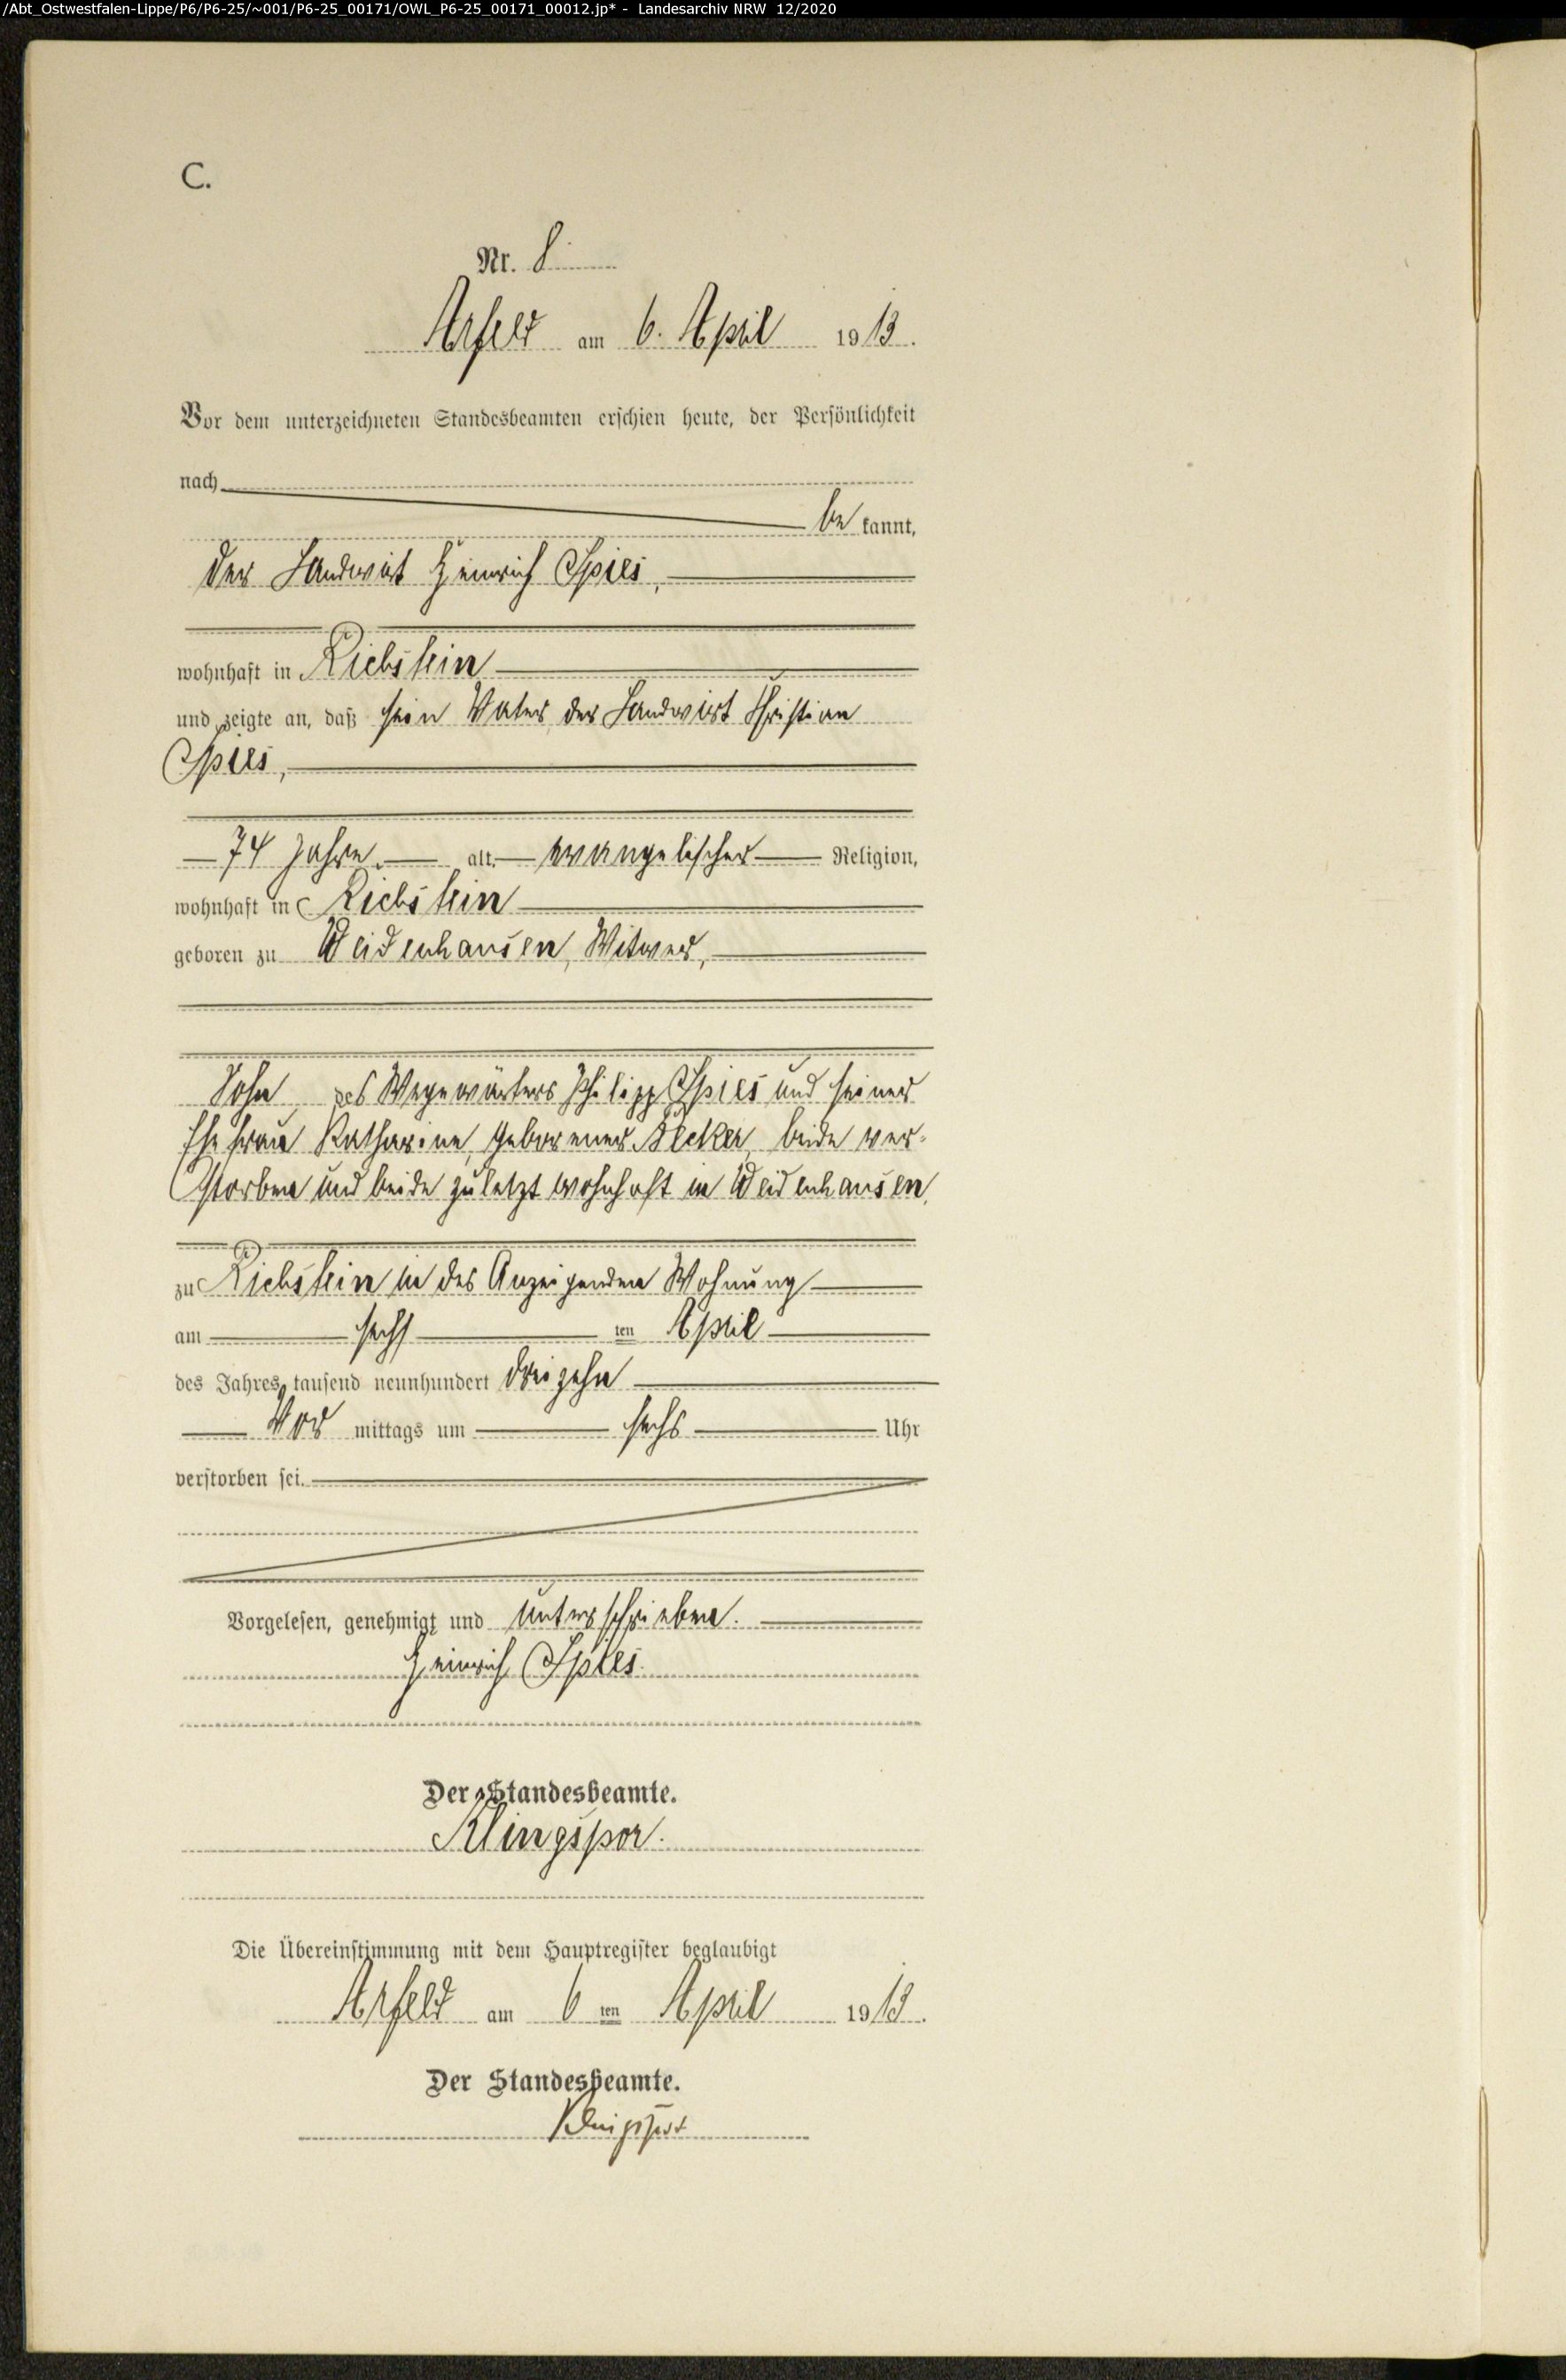 /Abt_Ostwestfalen-Lippe/P6/P6-25/~001/P6-25_00171/OWL_P6-25_00171_00012.jp* - Landesarchiv NRW 12/2020
C.
Nr. 8
Arfeld am 6. April 1913.
Vor dem unterzeichneten Standesbeamten erschien heute, der Persönlichkeit
nach
bekannt,
der Landwirt Heinrich Spies,
wohnhaft in Richstein
und zeigte an, daß sein Vater, der Landwirt Christian
Spies,
74 Jahre alt, evangelischer Religion,
wohnhaft in Richstein
geboren zu Weidenhausen, Witwer,
Sohn des Wegewärters Philipp Spies und seiner
Ehefrau Katharine, geborener Becker, beide ver-
storben und beide zuletzt wohnhaft in Weidenhausen,
zu Richstein in des Anzeigenden Wohnung
am sechsten April
des Jahres tausend neunhundert dreizehn
Vormittags um sechs Uhr
verstorben sei.
Vorgelesen, genehmigt und unterschrieben.
Heinrich Spies.
Der Standesbeamte.
Klingspor.
Die Übereinstimmung mit dem Hauptregister beglaubigt
Arfeld am 6ten April 1913.
Der Standesbeamte.
Klingspor